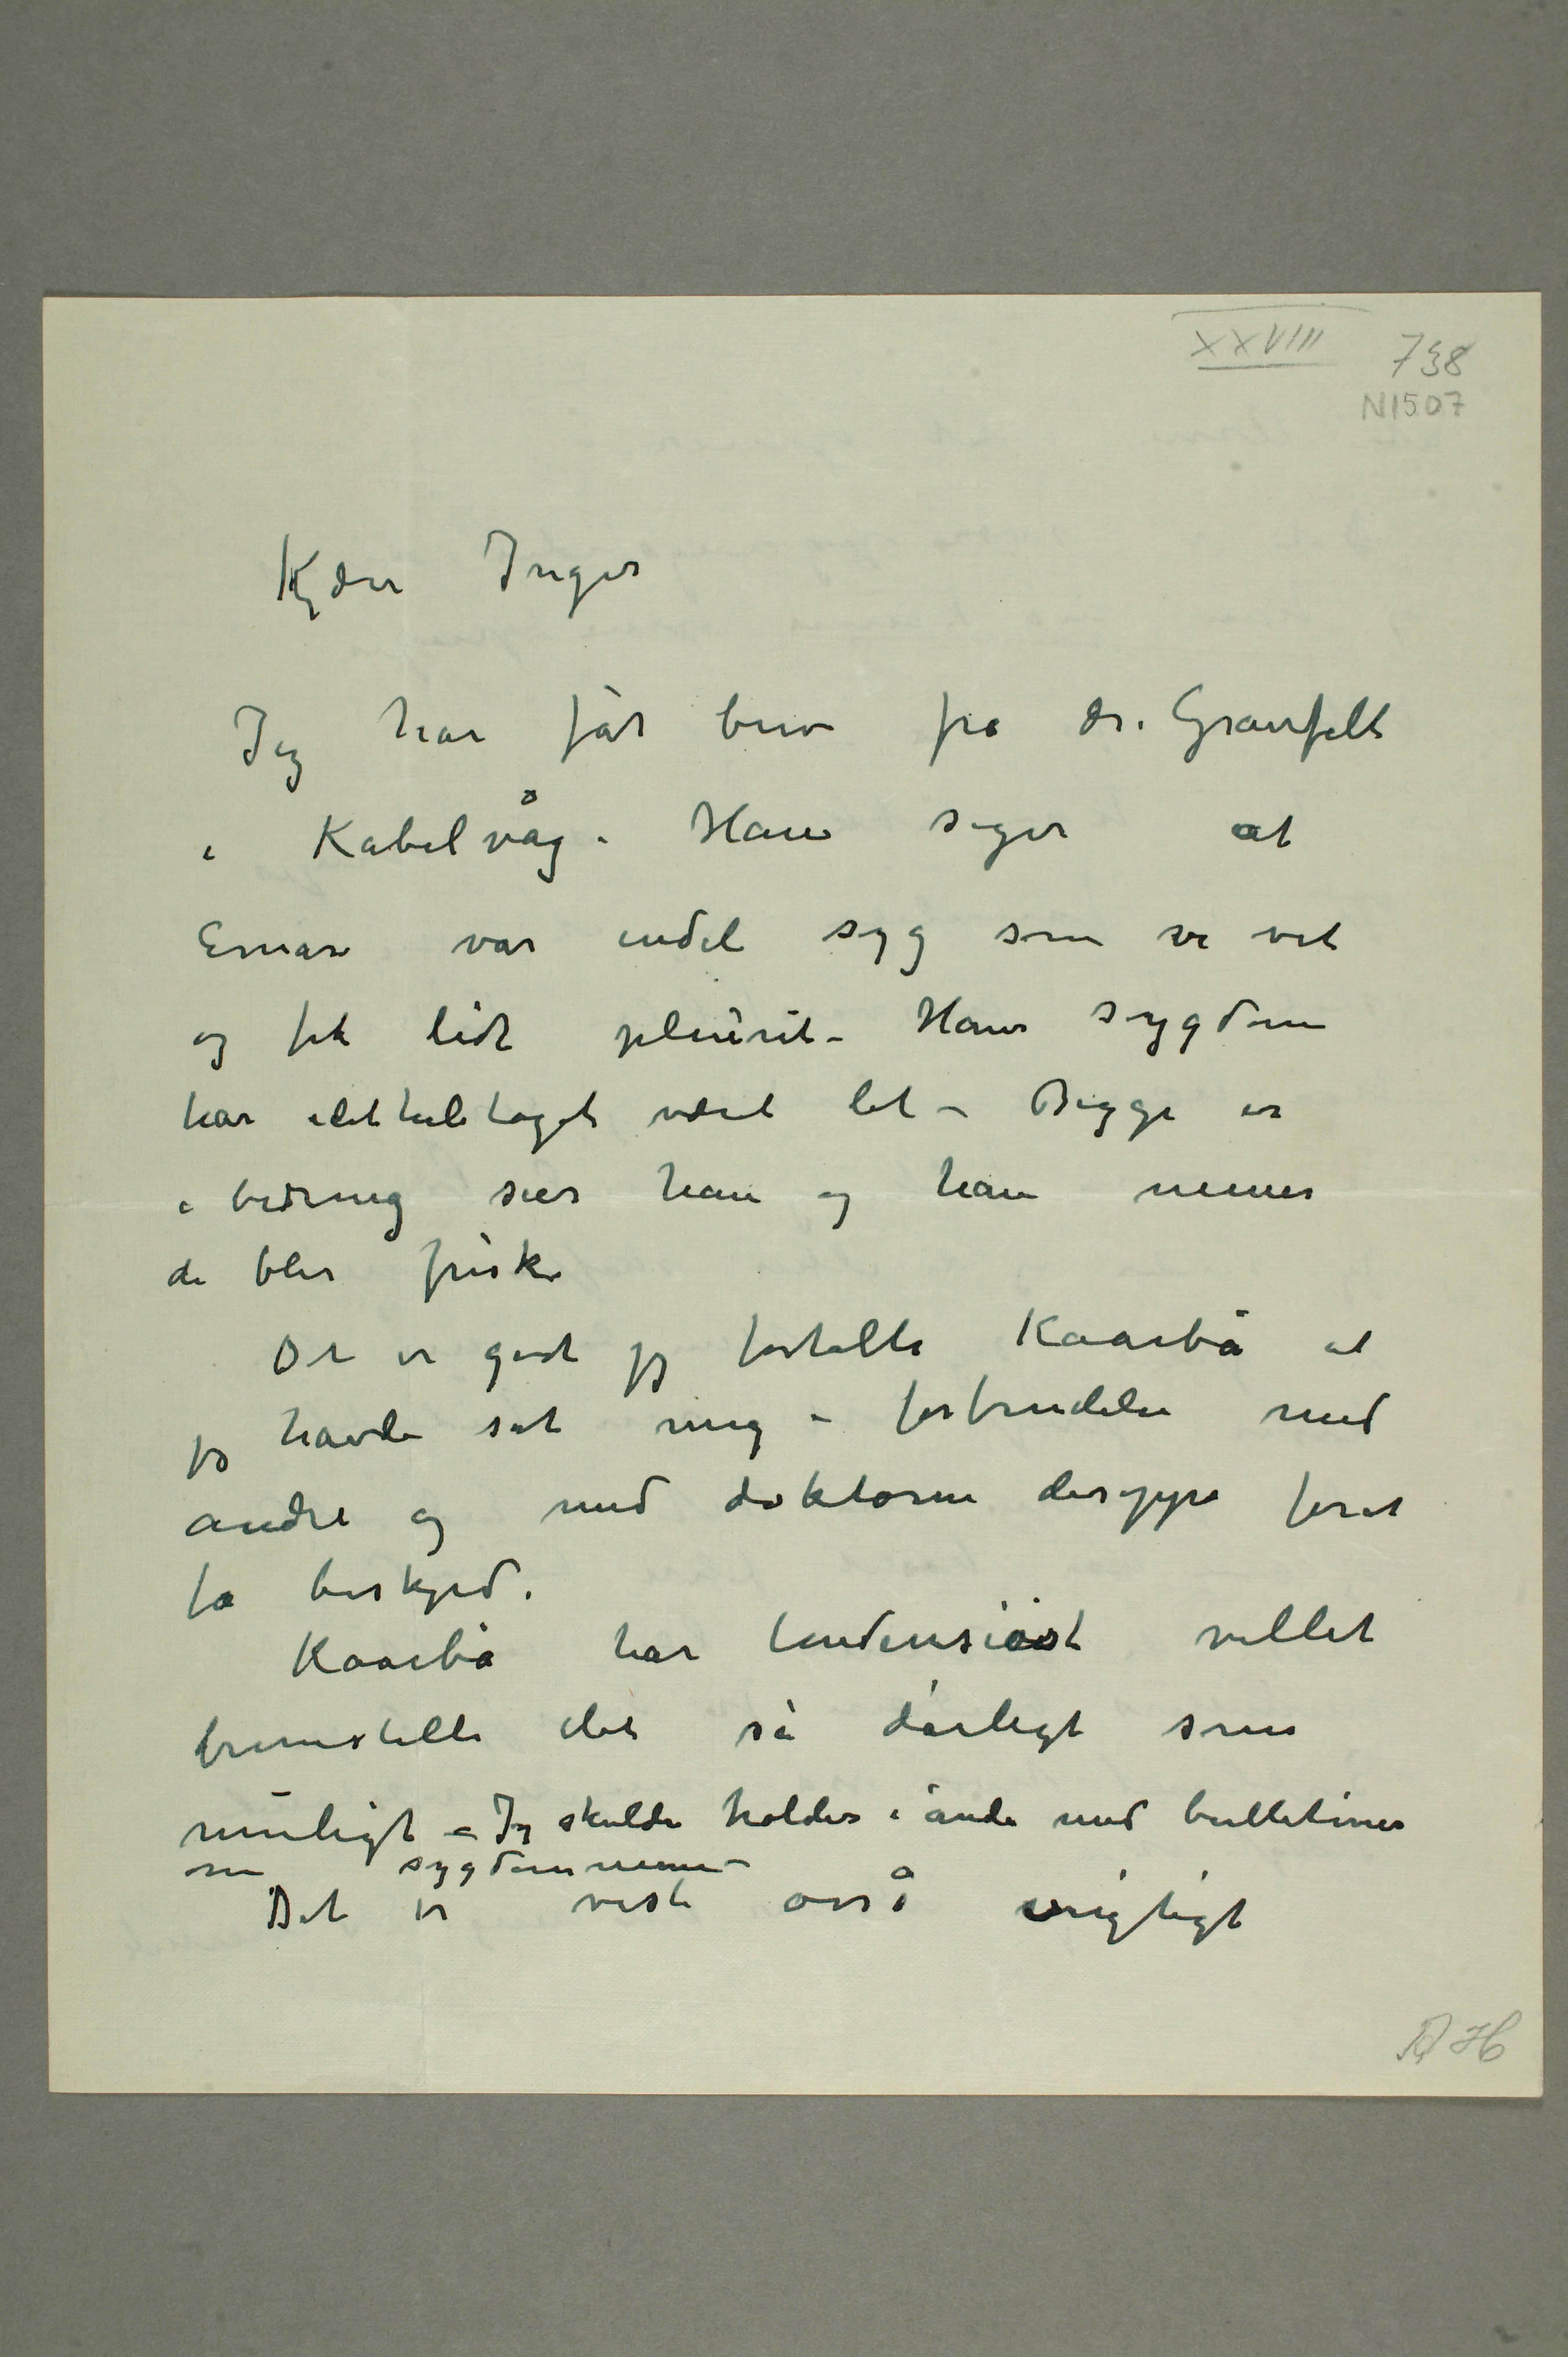 XXVIII 738
N1507
Kjære Inger
Jeg har fåt brev fra dr. Gravfelt
i Kabelvåg. Han siger at
var endel syg som vi vet
og fik lidt pleurit – Hans sygdom
har idethele taget været let – Begge er
i bedring sier han og han mener
de blir friske
Det er godt jeg fortalte Kaarbø at
jeg havde sat mig i forbindelse med
andre og med doktoren deroppe forat
få beskjed.
Kaarbø har tendensiøst villet
fremstille det så dårligt som
muligt – Jeg skulde holdes i ånde med bulletiner
om sygdommene –
Det er vist også urigtigt